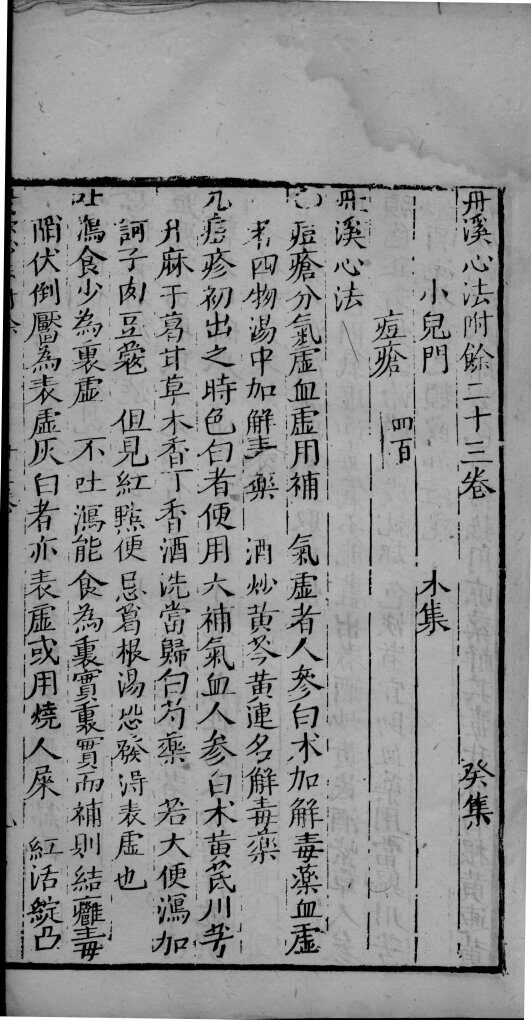 丹溪心法附餘二十三卷
小兒門 木集 癸集
痘瘡 四百
丹溪心法
痘瘡分氣虛血虛用補 氣虛者人參白术加解毒藥血虛
者四物湯中加解毒藥 酒炒黃芩黃連名解毒藥
凡痘疹初出之時色白者便用大補氣血人参白术黃芪川芎
升麻干葛甘草木香丁香酒洗當歸白芍藥 若大便瀉加
訶子肉豆蔻 但見紅㸃便忌葛根湯恐發得表虛也
吐瀉食少為裏虛 不吐瀉能食為裏實裏實而補則結癰毒
陷伏倒靨為表虛灰白者亦表虛或用燒人屎 紅活綻凸